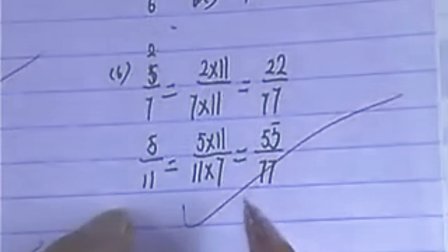 (6) 2/7 = 2×11/7×11 = 22/77
5/11 = 5×11/11×7 = 55/77